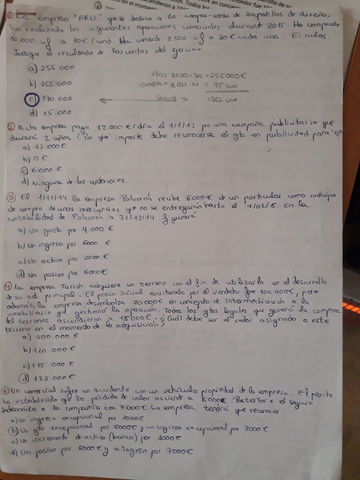 La empresa "RRU" que se dedica a la compra-venta de zapatillas de diseño,
ha realizado las siguientes operaciones comerciales durante 2015. Ha comprado
a 10€/und. Ha vendido 8.500 a 30€ cada uno.
Indique el resultado de las ventas del ejercicio
a) 255.000
b) 155.000
c) 170.000
d) 15.000
255.000€
Dicha empresa paga 12.000€ el 1/1/13 por una compañía publicitaria que
durará 2 años. ¿Por qué importe debe reconocerse el gto en publicidad para
a) 12.000€
b) 0€
c) 6000€
d) Ninguna de las anteriores
El 1/11/14 la empresa Polución recibe 6000€ de un particular como anticipo
de compra de unas mercancías que no se entregarán hasta el En la
contabilidad de Polución a 31/12/14 figurará
a) Un gasto por 4.000€
b) Un ingreso por 6000€
c) Un activo por 2000€
d) Un pasivo por 6000€
La empresa adquiere un terreno con el fin de utilizarlo en el desarrollo
de su act principal. El precio inicial por el vendedor fue 100.000€, pero
además, la empresa desembolsa 20.000€ en concepto de intermediación a la
inmobiliaria que gestionó la operación. Todos los gtos legales que generó la compra
del terreno ascendieron a 15.000€. ¿Cuál debe ser el valor asignado a este
terreno en el momento de la adquisición?
a) 100.000€
b) 120.000€
c) 115.000€
d) 135.000€
Un comercial sufre un accidente con un vehículo propiedad de la empresa. El perito
ha establecido que la pérdida de valor asciende a 6000€. Posterior el seguro
indemniza a la compañía con 7000€. La empresa tendrá que reconocer
a) Un ingreso excepcional por 1000€
b) Un gto excepcional por 6000€ y un ingreso excepcional por 7000€
c) Un incremento de activo (banco) por 1000€
d) Un pasivo por 6000€ y un ingreso por 7000€